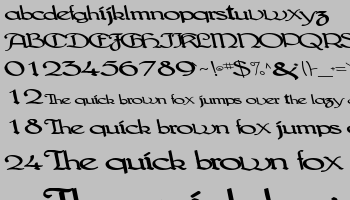 abcdefghijklmnopqrstuvwxyz
ABCDEFGHIJKLMNOPQRS
0123456789 $%^&
12 The quick brown fox jumps over the lazy
18 The quick brown fox jumps
24 The quick brown fox
The